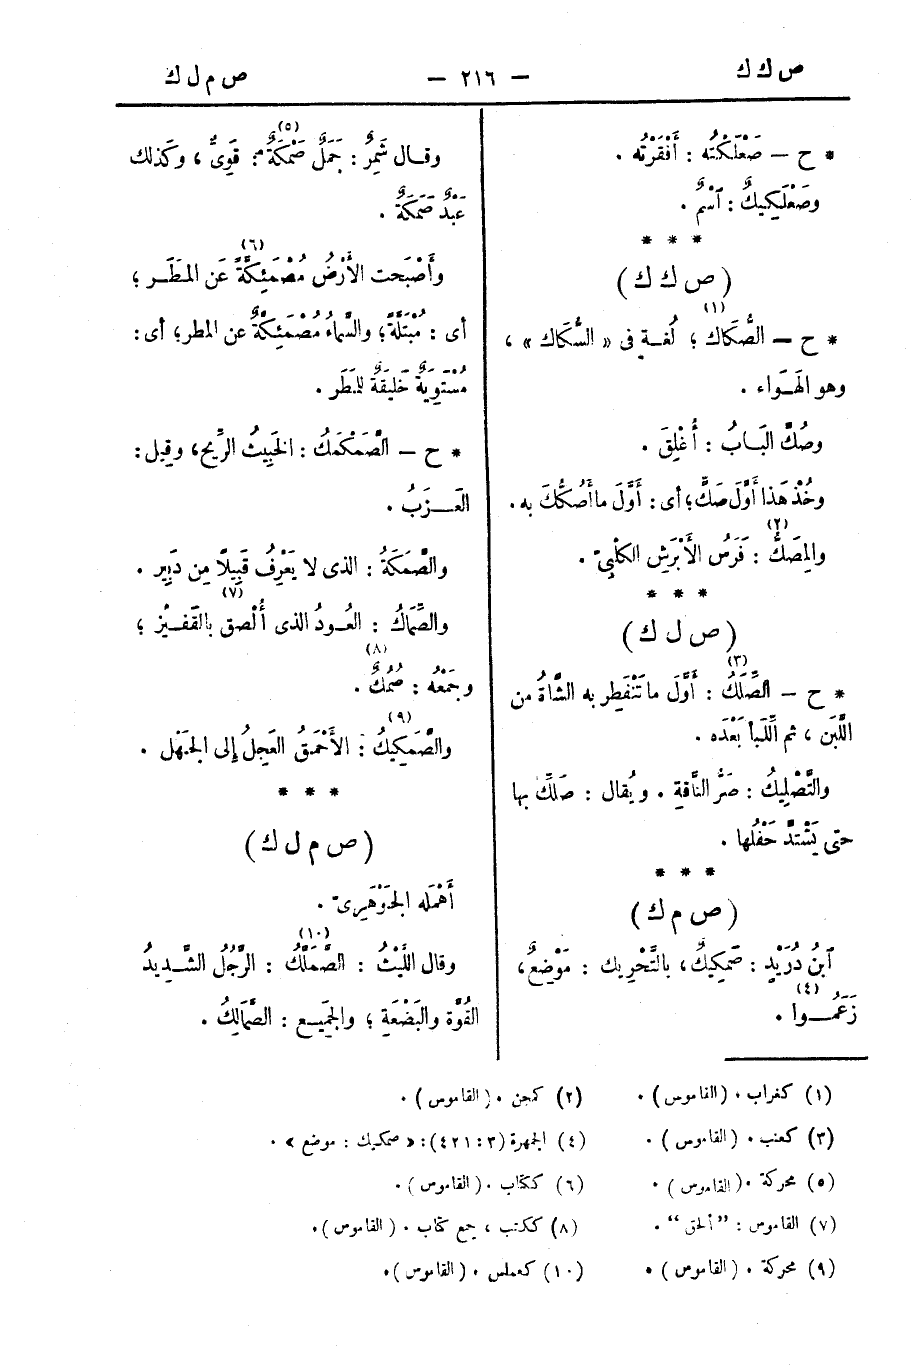 ص ك ك — ٢١٦ — ص م ل ك
* ح — صَعْلَكْتُه : أَفْقَرْتُه .
وصَعْلَكِيكٌ : اَسْمٌ .
* * *
( ص ك ك )
* ح — الصُّكَاك (١) ؛ لُغــة فى « السُّكاك » ،
وهو الهَــوَاء .
وصُكَّ البَـابُ : أُغْلِقَ .
وخُذْ هَذا أَوَّلَ صَكٍّ؛ أى : أَوَّلَ ما أَصُكُّكَ به .
والمِصَكُّ (٢) : فَرَسُ الأَبْرَشِ الكَلْبِىّ .
* * *
( ص ل ك )
* ح — الصِّلَكُ (٣) : أَوَّلَ ما تَنْفَطِر به الشَّاةُ من
اللَّبَن ، ثم اللِّبَأ بَعْدَه .
والتَّصْلِيكُ : صَرُّ النَّاقةِ . ويُقال : صَلِّكْ بها
حتى يَشْتَدَّ حَفْلُها .
* * *
( ص م ك )
اَبنُ دُرَيْدٍ : صَمَكِيكٌ، بالتَّحْرِيك : مَوْضِعٌ،
زَعَمُــوا (٤) .
وقـال شَمِرٌ : جَمَلٌ صَمْكَةٌ (٥) : قَوِىٌّ ، وكَذلك
عَبْدٌ صَمَكَةٌ .
وأَصْبَحت الأَرْضُ مُصْمَئِكَّةً (٦) عَن المَطَـر ؛
أى : مُبْتَلَّةً؛ والسَّماءُ مُصْمَئِكَّةٌ عن المطر؛ أى :
مُسْتَوِيَةٌ خَلِيقَةٌ للمَطَر .
* ح — الصَّمَكْمَكُ : الخَبِيثُ الرِّيح، وقيل :
العَــزَبُ .
والصَّمَكَةُ : الذى لا يَعْرِفُ قَبِيلًا مِن دَبِير .
والصِّمَاكُ : العُـودُ الذى أُلْصق (٧) بالقَفـيْز ؛
وجَمْعُه : صُمُكٌ (٨) .
والصَّمَكِيكُ (٩) : الأَحْمَقُ العَجِلُ إلى الجَهْل .
* * *
( ص م ل ك )
أَهْمَله الجَوْهَرِىّ .
وقال اللَّيْثُ : الصَّمَلَّكُ (١٠) : الرَّجُلُ الشَّـدِيدُ
القُوَّة والبَضْعَةِ ؛ والجَمِيــع : الصَّمَالِكُ .
(١) كغراب . (القاموس) . (٢) كمجن . (القاموس) .
(٣) كعنب . (القاموس) . (٤) الجمهرة (٣ : ٤٢١) : « صمكيك : موضع » .
(٥) محركة . (القاموس) . (٦) ككتاب . (القاموس) .
(٧) القاموس : “ ألحق “ . (٨) ككتب ، جمع كتاب . (القاموس) .
(٩) محركة . (القاموس) . (١٠) كعملس . (القاموس) .